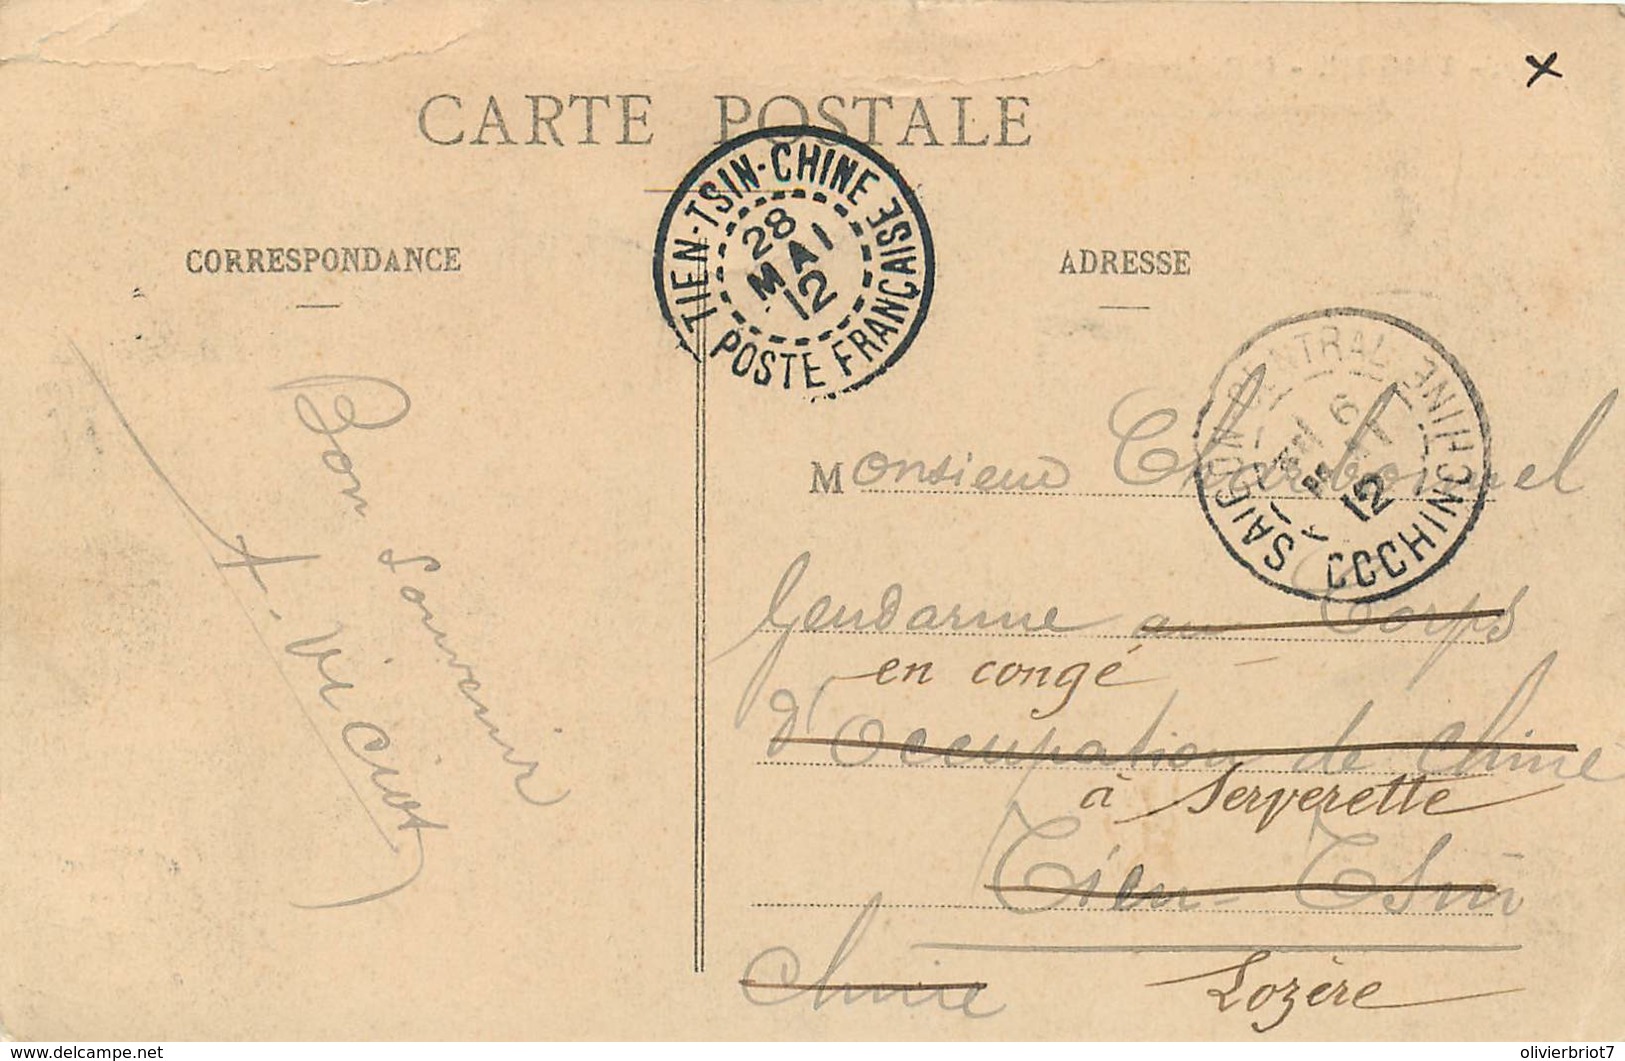 CARTE POSTALE
TIEN-TSIN-CHINE
28
MAI
12
POSTE FRANÇAISE
CORRESPONDANCE
ADRESSE
SAIGON CENTRAL
6
MAI
12
COCHINCHINE
Bon Souvenir
Monsieur Charbonnel
Gendarme au Corps
en congé
d'Occupation de Chine
à Serverette
Tien-Tsin
Chine
Lozère
www.delcampe.net
olivierbriot7